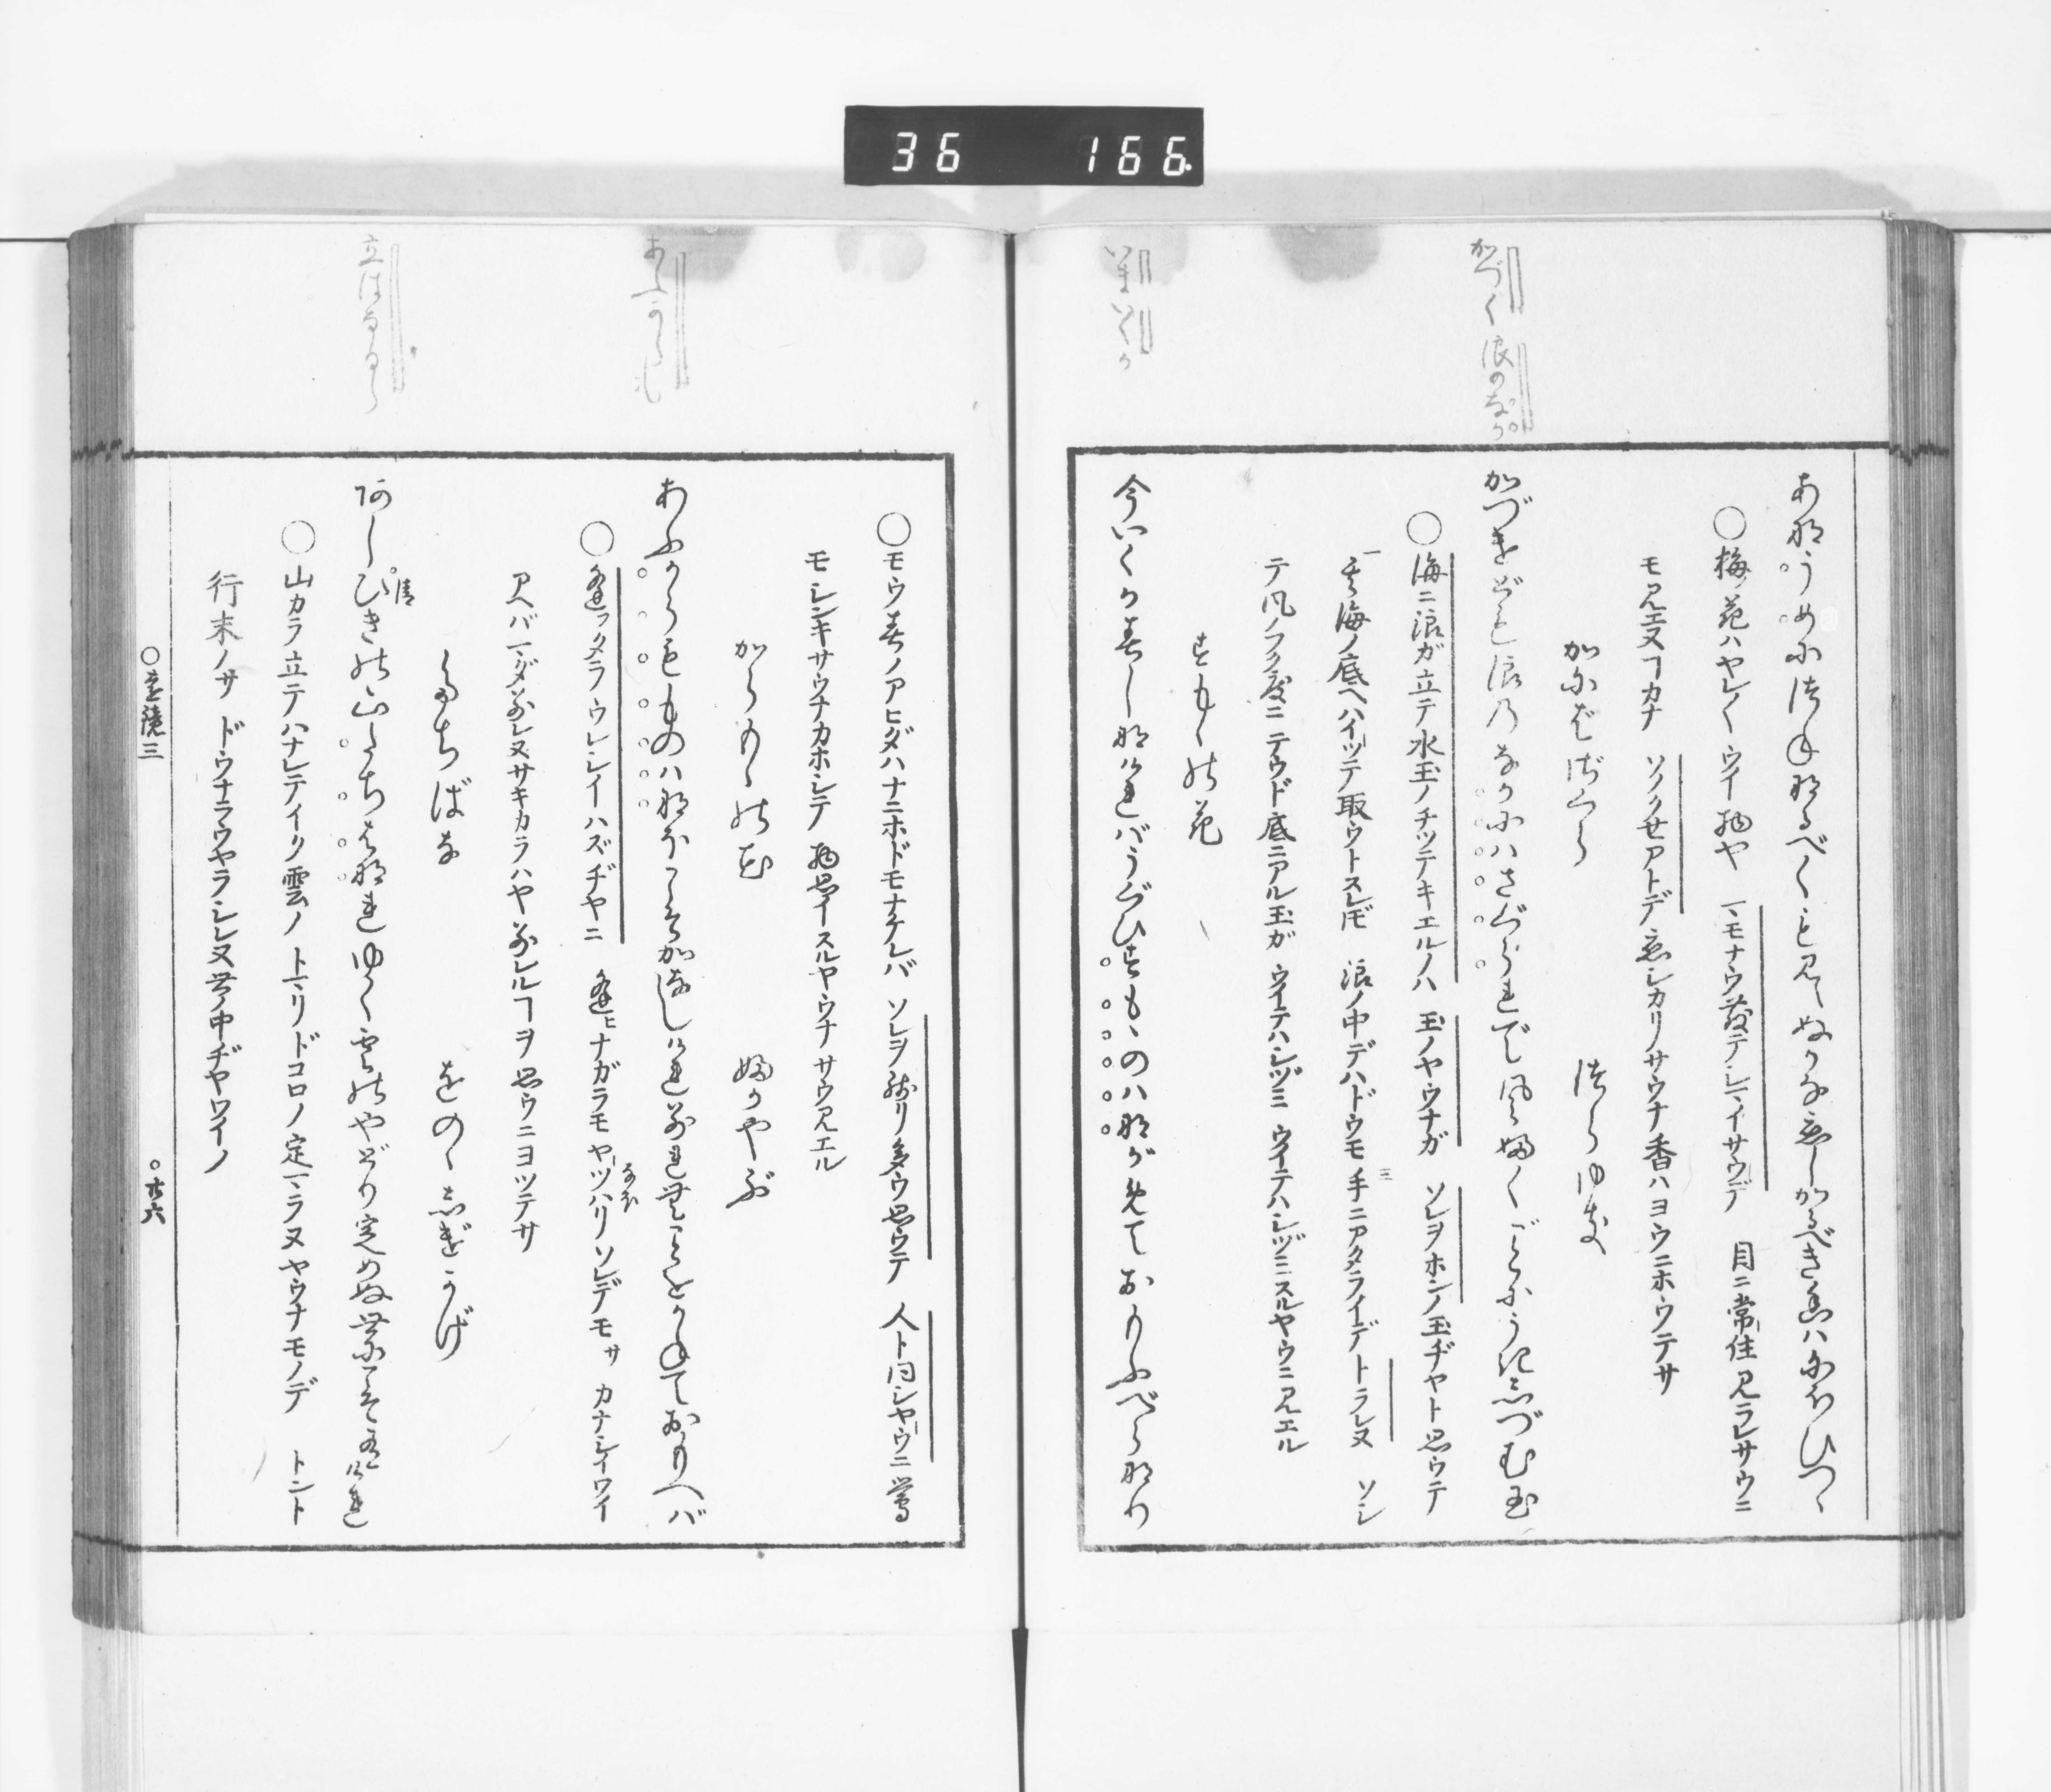 36 166
かづく 浪のなか
いま いくか
あなうめに つねなるべくも見えぬかな恋しかるべき香ハにほひつゝ
○梅ノ花ハヤレ〳〵ウイ物ヤ マモナウ散テシマイサウデ 目ニ常住見ラレサウニ
モ見エヌヿカナ ソノクセアトデ恋シカリサウナ香ハヨウニホウテサ
かにはざくら つらゆき
かづけども浪のなかにハさぐられで風ふくごとにうきしづむ玉
○海ニ浪ガ立テ水玉ノチツテキエルノハ 玉ノヤウナガ ソレヲホンノ玉ヂヤト思ウテ
其海ノ底ヘハイツテ取ウトスレドモ 浪ノ中デハドウモ手ニアタライデトラレヌ ソシ
テ風ノフク度ニ テウド底ニアル玉ガ ウイテハシヅミ ウイテハシヅミスルヤウニ見エル
すもゝの花
今いくか春しなければうぐひすもものハながめておもふべらなり
あふからも
立はなるら
○モウ春ノアヒダハナニホドモナケレバ ソレヲ残リ多ウ思ウテ 人ト同シヤウニ鶯
モシンキサウナカホシテ 物思イスルヤウナ サウ見エル
からもゝの花 ふかやぶ
あふからもものハなほこそかなしけれわかれむことをかねておもへバ
○逢フタラウレシイハズヂヤニ 逢ヒナガラモヤツハリソレデモサ カナシイワイ
なほ
アヘバマダ別レヌサキカラハヤ別レルヿヲ思ウニヨツテサ
たちばな をのゝしげかげ
あしひきの山たちはなれゆく雲のやどり定めぬ世にこそ有けれ
清
○山カラ立テハナレテイク雲ノ トマリドコロノ定マラヌヤウナモノデ トント
行末ノサ ドウナラウヤラシレヌ世ノ中ヂヤワイノ
○遠鏡三 ○廿六